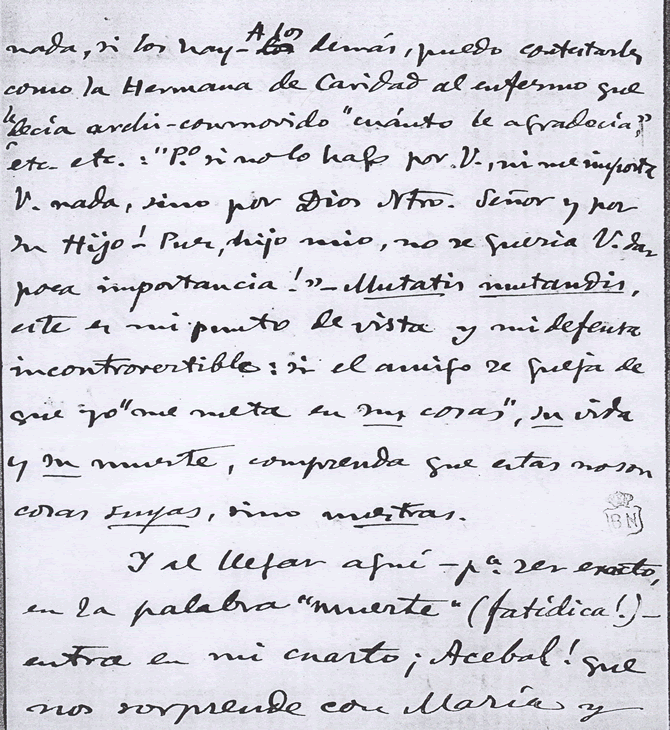 nada, si los hay - A los demás, puedo contestarles
como la Hermana de Caridad al enfermo que
le decía archi-conmovido "cuánto le agradecía,"
etc. etc.: "P.º si no lo hago por V., ni me importa
V. nada, sino por Dios Ntro. Señor y por
su Hijo! Pues, hijo mio, no se queria V. dar
poca importancia!" - Mutatis mutandis,
este es mi punto de vista y mi defensa
incontrovertible: si el amigo se queja de
que yo "me meta en sus cosas", su vida
y su muerte, comprenda que estas no son
cosas suyas, sino nuestras.
Y al llegar aquí - p.ª ser exacto,
en la palabra "muerte" (fatídica!) -
entra en mi cuarto ¡Acebal! que
nos sorprende con María y
BN